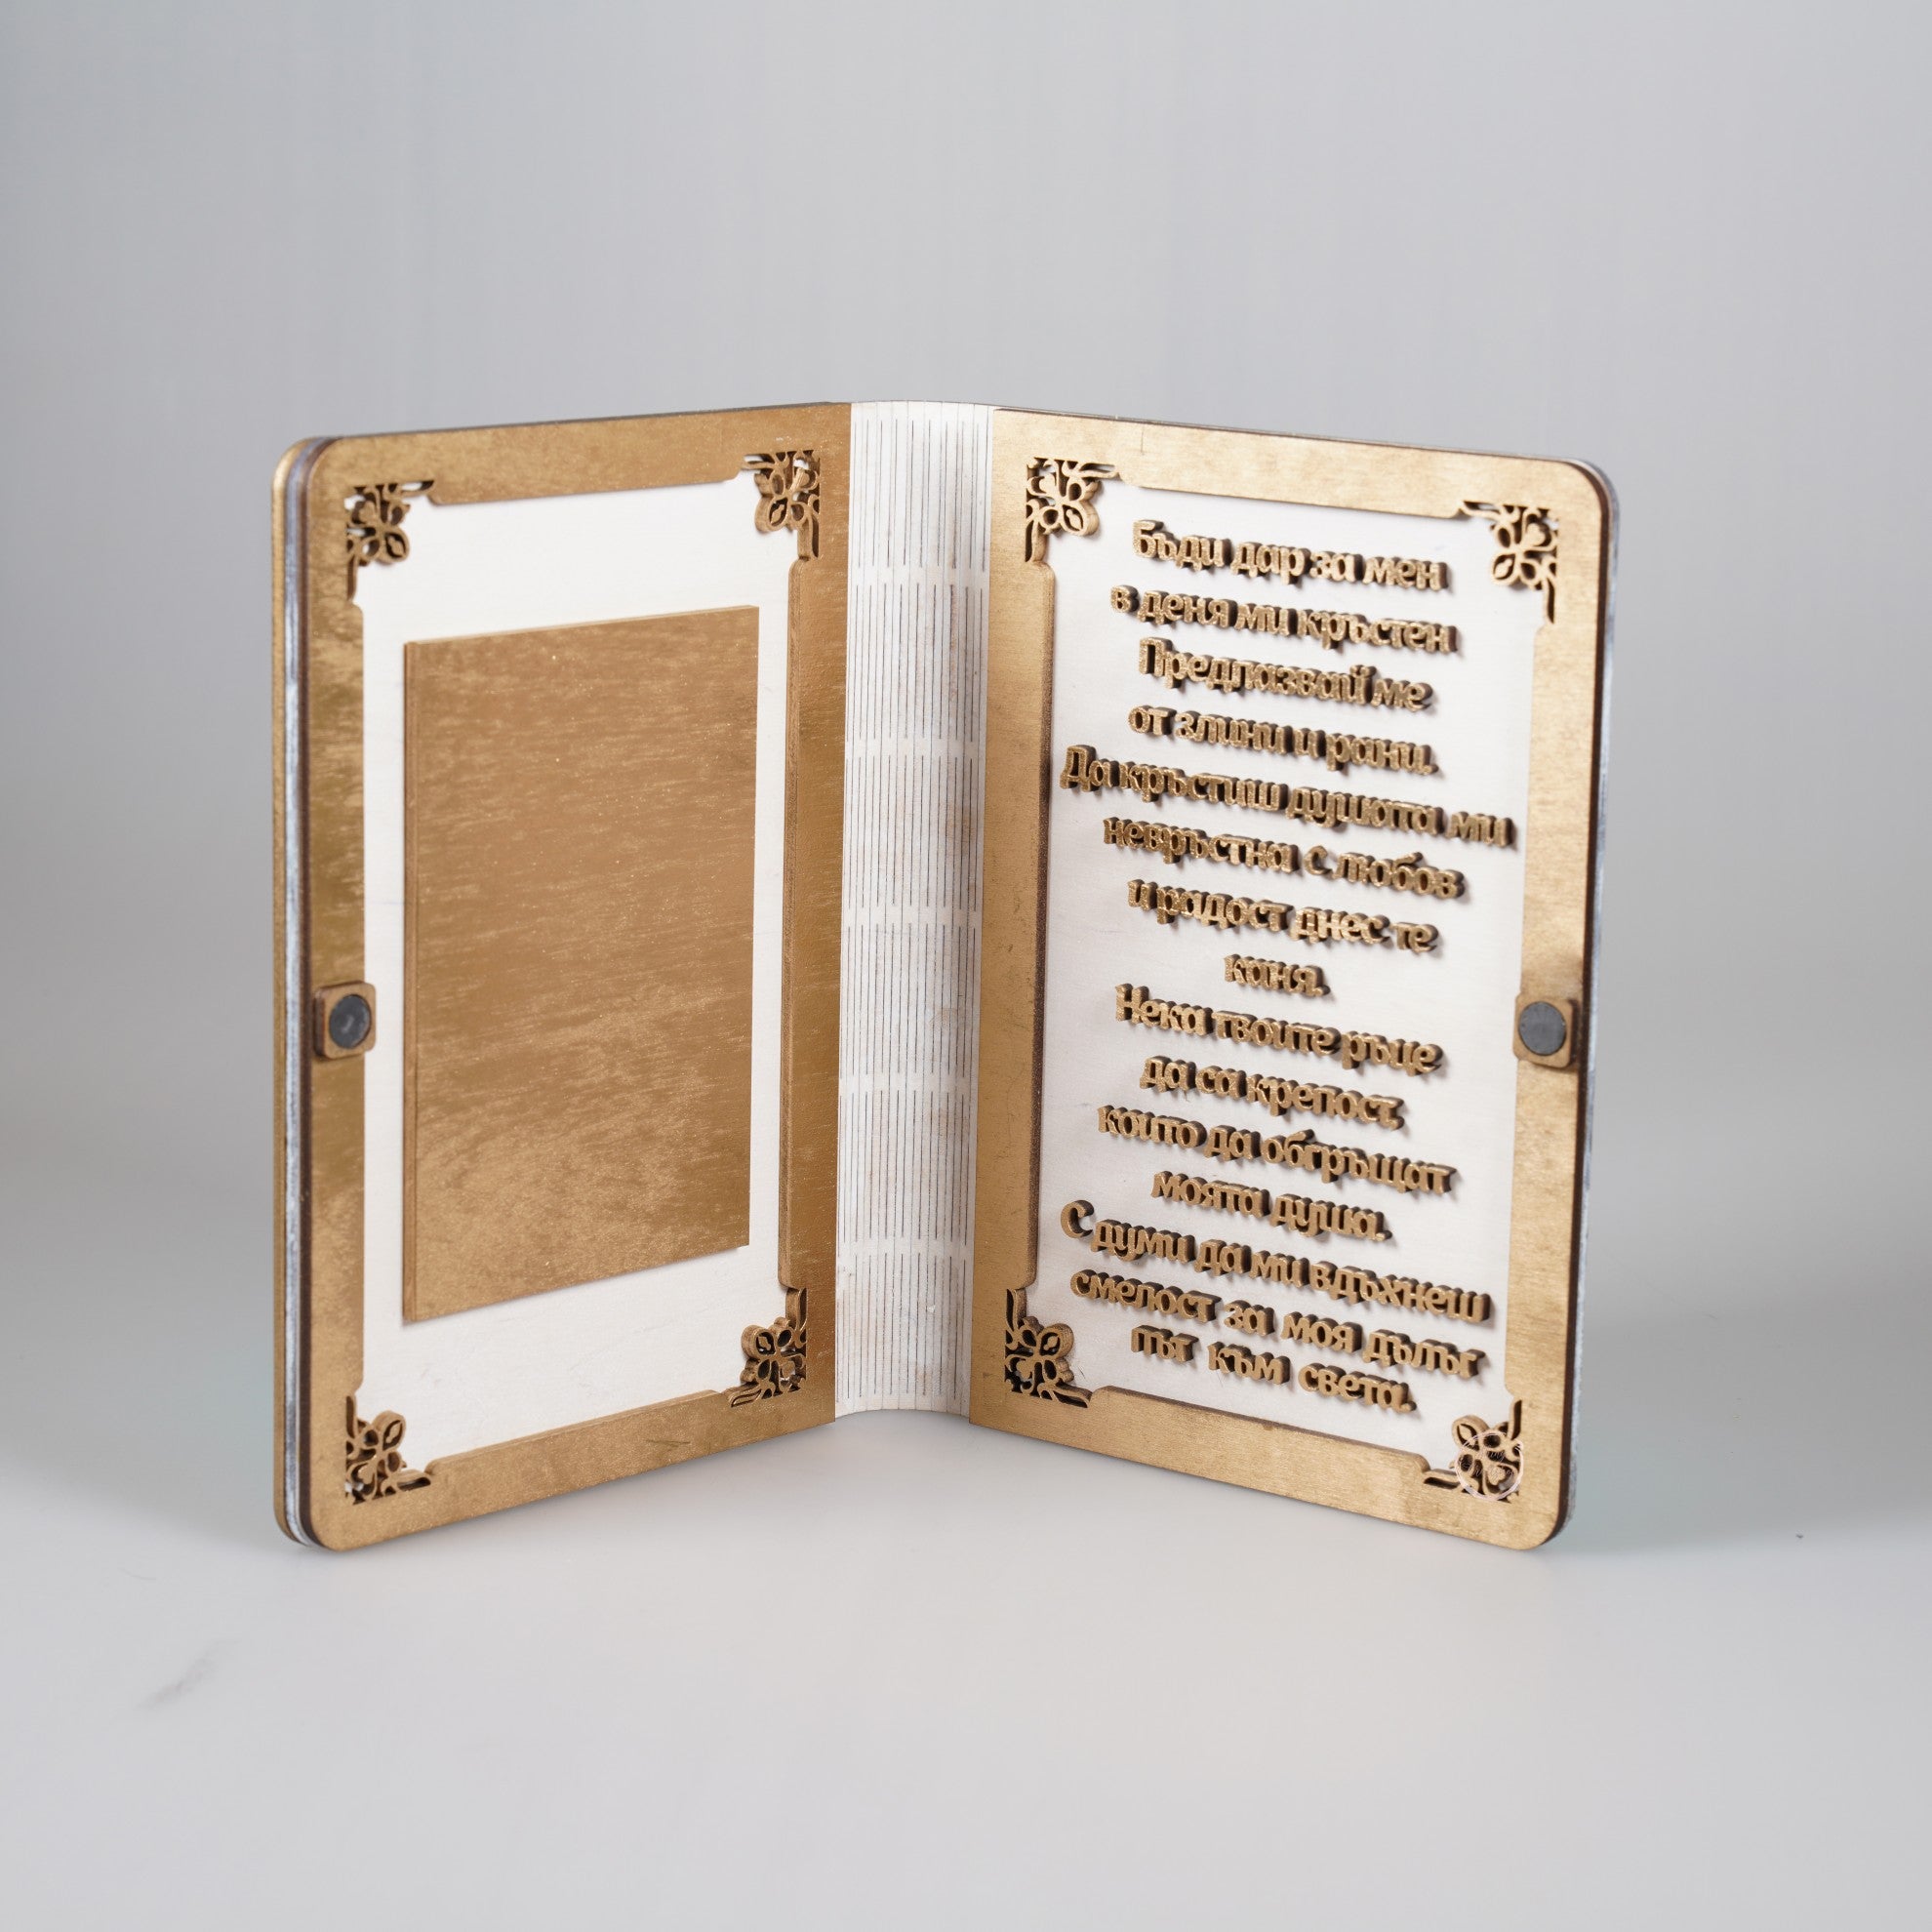 бъди дар за мен
в деня ми кръстен
Предпазвай ме
от злини и рани.
Да кръстиш душата ми
невръстна с любов
и радост днес те
каня.
Нека твоите ръце
да са крепост,
които да обгръщат
моята душа.
С думи да ми вдъхнеш
смелост за моя дълъг
път към света.